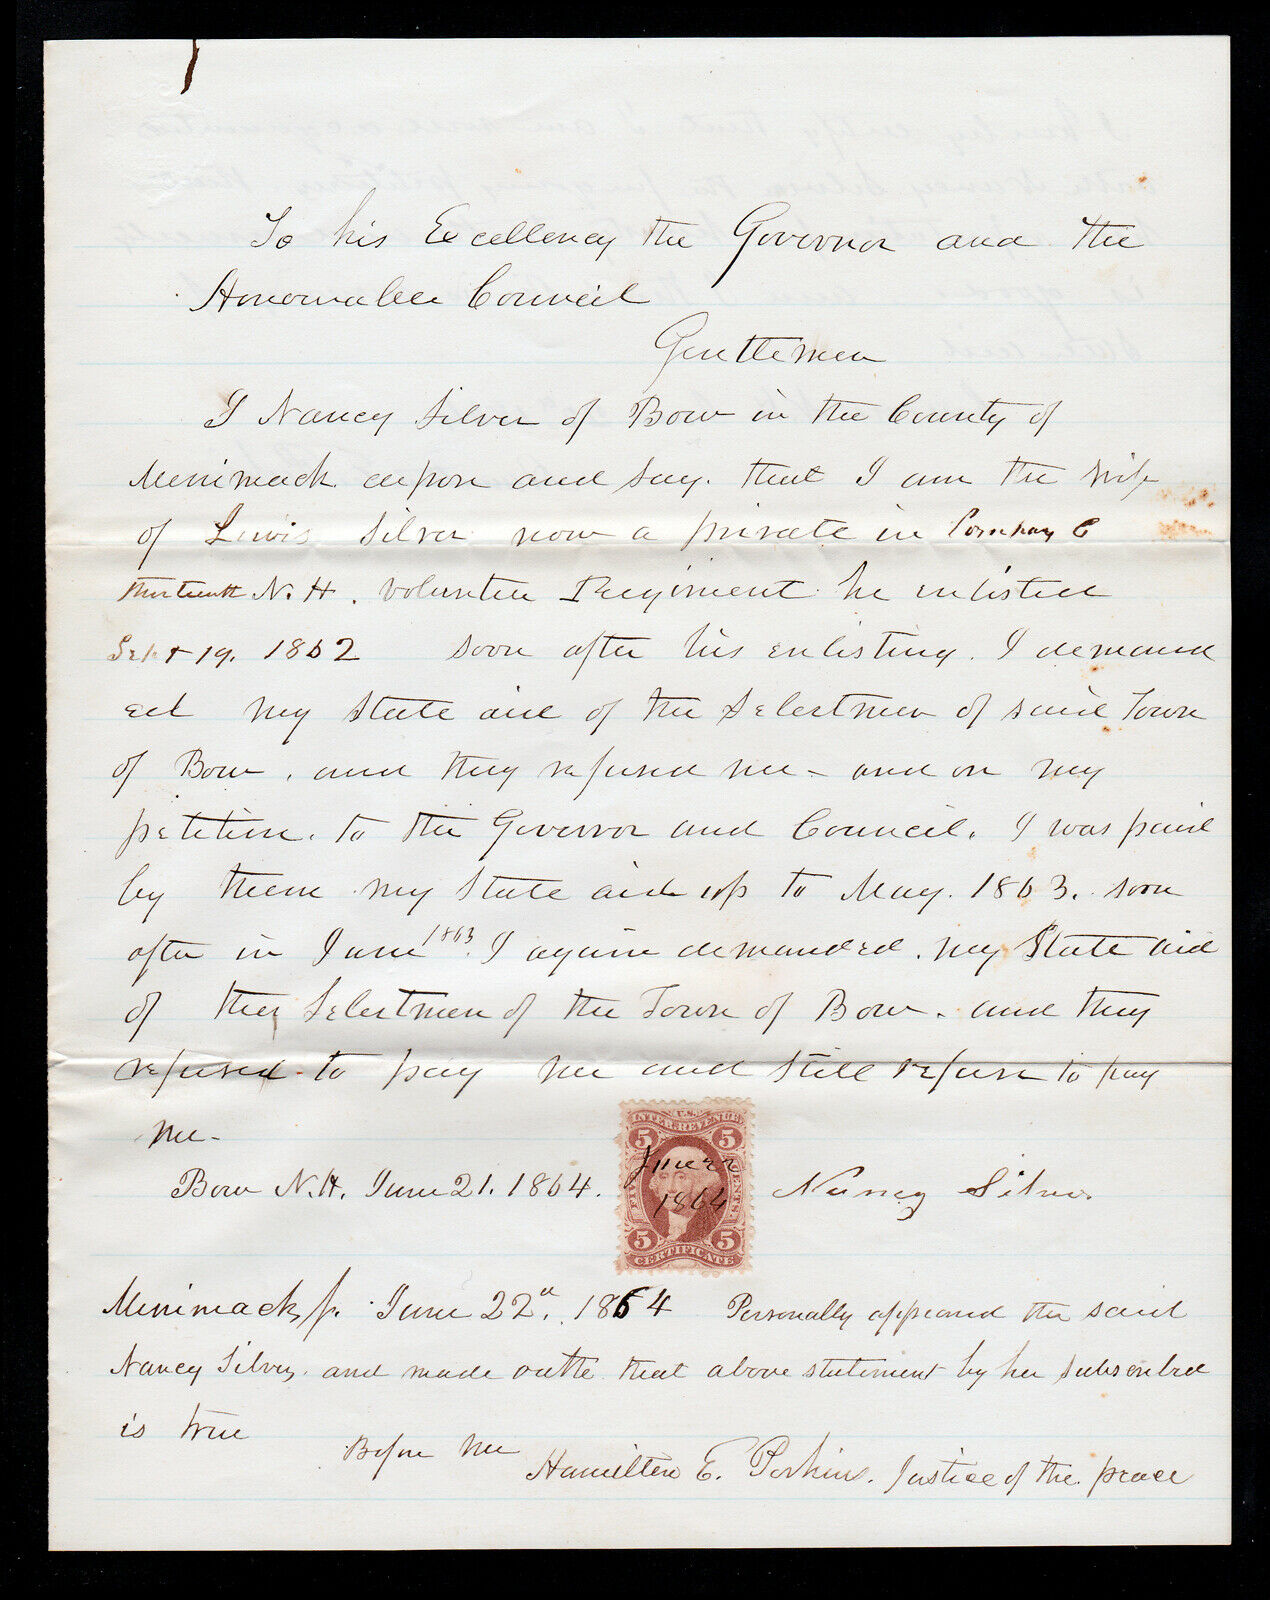 To his Excellency the Governor and the
Honourable Council
Gentlemen
I Nancy Silver of Bow in the County of
Merrimack depose and say. that I am the wife
of Lewis Silver now a private in Company C
thirteenth N. H. Volunteer Regiment he enlisted
Sept 19. 1862 soon after his enlisting. I demand
ed my State aid of the Selectmen of said Town
of Bow. and they refused me - and on my
petition. to the Governor and Council. I was paid
by them my State aid up to May. 1863. soon
after in June 1863. I again demanded. my State aid
of the Selectmen of the Town of Bow. and they
refused to pay me and still refuse to pay
me-
U.S.
INTER. REVENUE
5 5
June 22
1864
CENTS.
5 5
CERTIFICATE
Bow N.H. June 21. 1864. Nancy Silver
Merrimack, ss. June 22d. 1864 Personally appeared the said
Nancy Silver, and made oathe that above statement by her subscribed
is true
Before Me
Hamilton E. Perkins. Justice of the peace